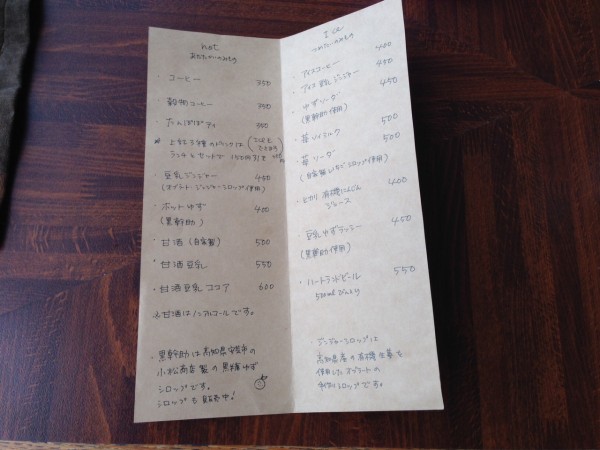 hot
あたたかいのみもの
・コーヒー 350
・穀物コーヒー 350
・たんぽぽティ 350
＊上記3種のドリンクは
ランチとセットで 150円引き
・豆乳ジンジャー 450
(オブラート・ジンジャーシロップ使用)
・ホットゆず 400
(黒幹助)
・甘酒(自家製) 500
・甘酒豆乳 550
・甘酒豆乳ココア 600
※甘酒はノンアルコールです。
・黒幹助は高知県安芸市の
小松商店製の黒糖ゆず
シロップです。
シロップも販売中!
Ice
つめたいのみもの
・アイスコーヒー 400
・アイス豆乳ジンジャー 450
・ゆずソーダ 450
(黒幹助使用)
・苺ソイミルク 500
・苺ソーダ 500
(自家製いちごシロップ使用)
・ヒカリ有機にんじん 400
ジュース
・豆乳ゆずラッシー 450
(黒幹助使用)
・ハートランドビール 550
500ml びん
ジンジャーシロップは
高知県産の有機生姜を
使用したオブラートの
手作りシロップです。